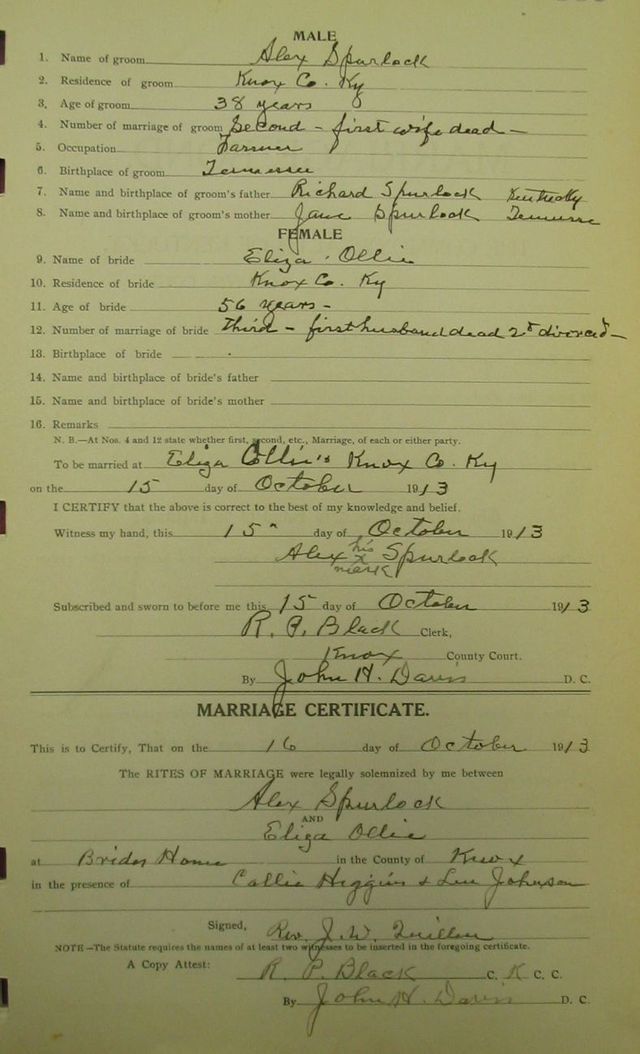 MALE
1. Name of groom Alex Spurlock
2. Residence of groom Knox Co. Ky
3. Age of groom 38 years
4. Number of marriage of groom Second - first wife dead -
5. Occupation Farmer
6. Birthplace of groom Tennessee
7. Name and birthplace of groom's father Richard Spurlock Kentucky
8. Name and birthplace of groom's mother Jane Spurlock Tennessee
FEMALE
9. Name of bride Eliza Ollie
10. Residence of bride Knox Co. Ky
11. Age of bride 56 years -
12. Number of marriage of bride Third - first husband dead 2d divorced -
13. Birthplace of bride
14. Name and birthplace of bride's father
15. Name and birthplace of bride's mother
16. Remarks
N. B.—At Nos. 4 and 12 state whether first, second, etc., Marriage, of each or either party.
To be married at Eliza Ollie's Knox Co. Ky
on the 15 day of October 1913
I CERTIFY that the above is correct to the best of my knowledge and belief.
Witness my hand, this 15" day of October 1913
Alex his x mark Spurlock
Subscribed and sworn to before me this 15 day of October 1913
R. P. Black Clerk,
Knox County Court.
By John H. Davis D. C.
MARRIAGE CERTIFICATE.
This is to Certify, That on the 16 day of October 1913
The RITES OF MARRIAGE were legally solemnized by me between
Alex Spurlock
AND
Eliza Ollie
at Brides Home in the County of Knox
in the presence of Callie Higgins & Lee Johnson
Signed, Rev. J. W.
NOTE—The Statute requires the names of at least two witnesses to be inserted in the foregoing certificate.
A Copy Attest: R. P. Black C. K C. C.
By John H. Davis D. C.